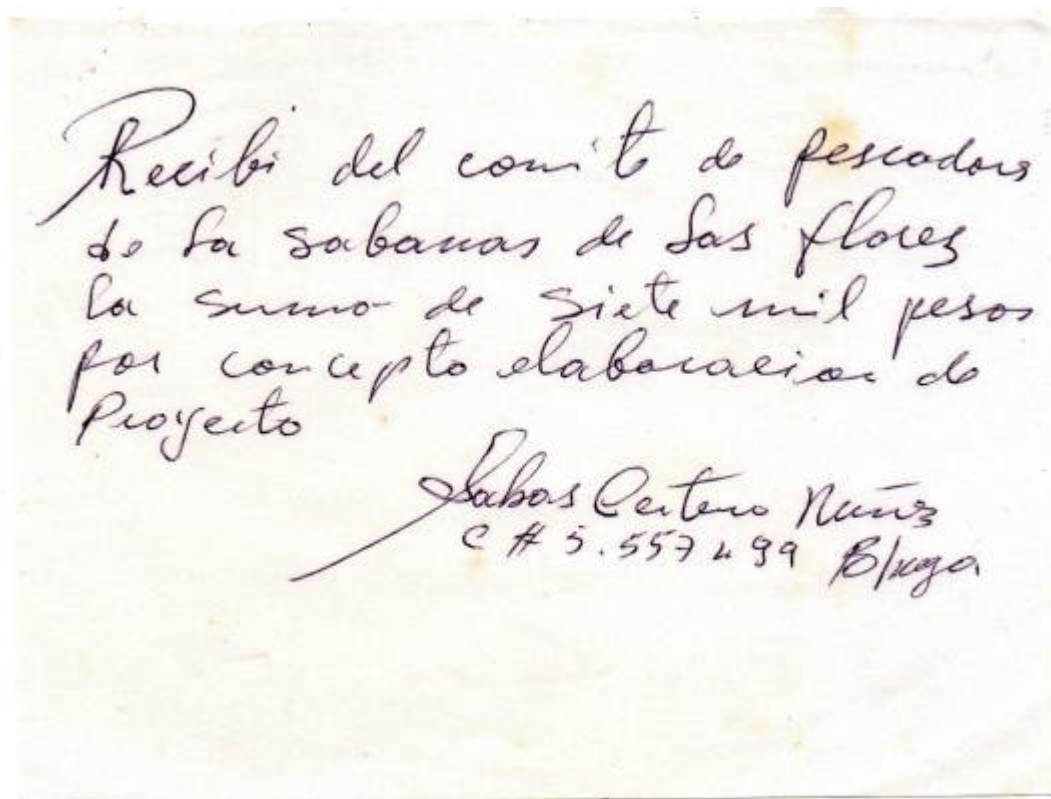 Recibi del comite de pescadores
de la sabanas de las flores
la suma de siete mil pesos
por concepto elaboracion de
Proyecto
Sabas Centeno Nuñez
C # 5.557499 B/nga